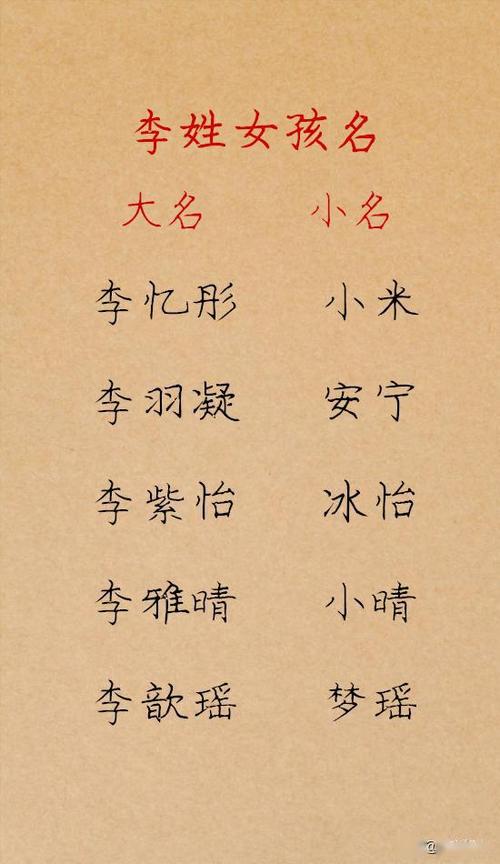 李姓女孩名
大名 小名
李忆彤 小米
李羽凝 安宁
李紫怡 冰怡
李雅晴 小晴
李歆瑶 梦瑶
@